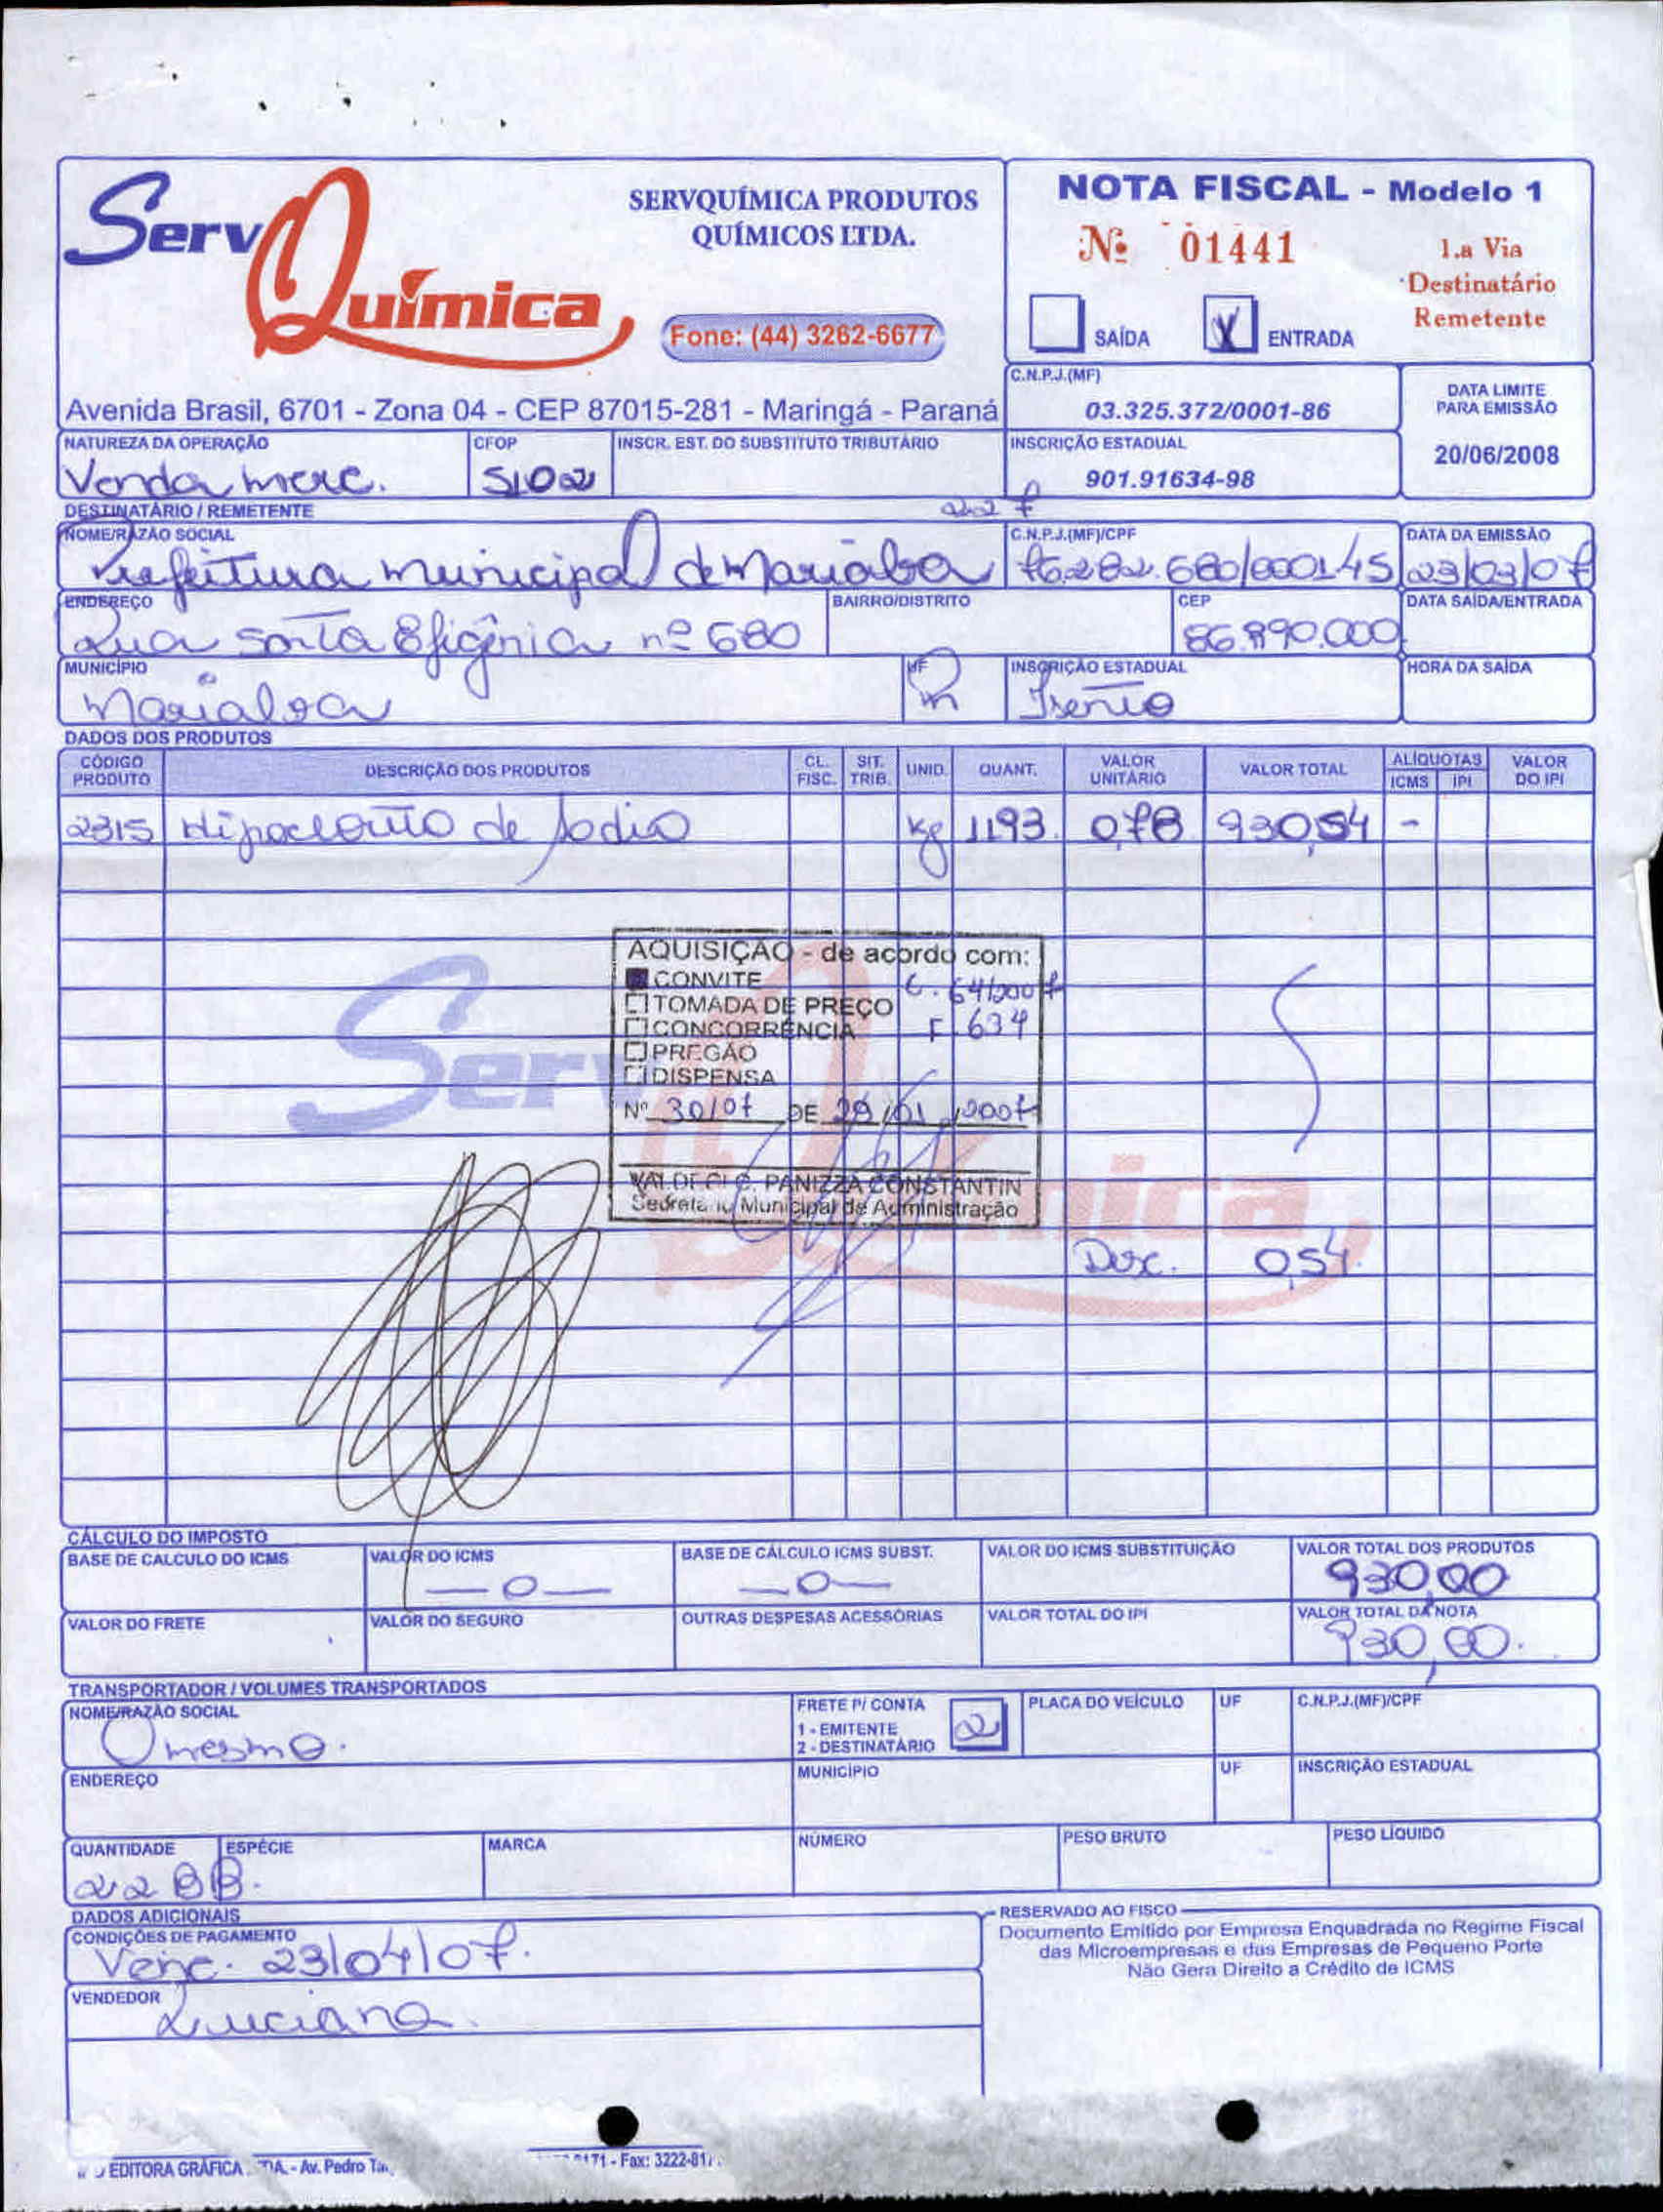 ServQuímica
SERVQUÍMICA PRODUTOS
QUÍMICOS LTDA.
Fone: (44) 3262-6677
Avenida Brasil, 6701 - Zona 04 - CEP 87015-281 - Maringá - Paraná
NOTA FISCAL - Modelo 1
Nº 01441
1.a Via
Destinatário
Remetente
SAÍDA X ENTRADA
C.N.P.J.(MF)
03.325.372/0001-86
DATA LIMITE
PARA EMISSÃO
20/06/2008
NATUREZA DA OPERAÇÃO
Venda merc.
CFOP
5102
INSCR. EST. DO SUBSTITUTO TRIBUTÁRIO
INSCRIÇÃO ESTADUAL
901.91634-98
DESTINATÁRIO / REMETENTE
NOME/RAZÃO SOCIAL
Prefeitura municipal de Marialva
C.N.P.J.(MF)/CPF
76.282.680/000145
DATA DA EMISSÃO
23/03/07
ENDEREÇO
Rua Santa Efigênia nº 680
BAIRRO/DISTRITO
CEP
86.990.000
DATA SAÍDA/ENTRADA
MUNICÍPIO
Marialva
UF
Pr
INSCRIÇÃO ESTADUAL
Isento
HORA DA SAÍDA
DADOS DOS PRODUTOS
CÓDIGO PRODUTO DESCRIÇÃO DOS PRODUTOS CL. FISC. SIT. TRIB. UNID. QUANT. VALOR UNITÁRIO VALOR TOTAL ALÍQUOTAS ICMS IPI VALOR DO IPI
2315 Hipoclorito de Sodio Kg 1193 0,78 930,54 -
AQUISIÇÃO - de acordo com:
CONVITE C. 64/2007
TOMADA DE PREÇO
CONCORRÊNCIA F. 634
PREGÃO
DISPENSA
Nº 30/07 DE 29/01/2007
PANIZZA CONSTANTIN
Secretario Municipal de Administração
Desc. 0,54
CÁLCULO DO IMPOSTO
BASE DE CALCULO DO ICMS
VALOR DO ICMS
-0-
BASE DE CÁLCULO ICMS SUBST.
-0-
VALOR DO ICMS SUBSTITUIÇÃO
VALOR TOTAL DOS PRODUTOS
930,00
VALOR DO FRETE
VALOR DO SEGURO
OUTRAS DESPESAS ACESSÓRIAS
VALOR TOTAL DO IPI
VALOR TOTAL DA NOTA
930,00.
TRANSPORTADOR / VOLUMES TRANSPORTADOS
NOME/RAZÃO SOCIAL
O mesmo.
FRETE P/ CONTA
1 - EMITENTE
2 - DESTINATÁRIO
2
PLACA DO VEÍCULO
UF
C.N.P.J.(MF)/CPF
ENDEREÇO
MUNICÍPIO
UF
INSCRIÇÃO ESTADUAL
QUANTIDADE
22
ESPÉCIE
BB.
MARCA
NÚMERO
PESO BRUTO
PESO LÍQUIDO
DADOS ADICIONAIS
CONDIÇÕES DE PAGAMENTO
Venc. 23/04/07.
VENDEDOR
Luciana
RESERVADO AO FISCO
Documento Emitido por Empresa Enquadrada no Regime Fiscal
das Microempresas e das Empresas de Pequeno Porte
Não Gera Direito a Crédito de ICMS
EDITORA GRÁFICA - Av. Pedro
- Fax: